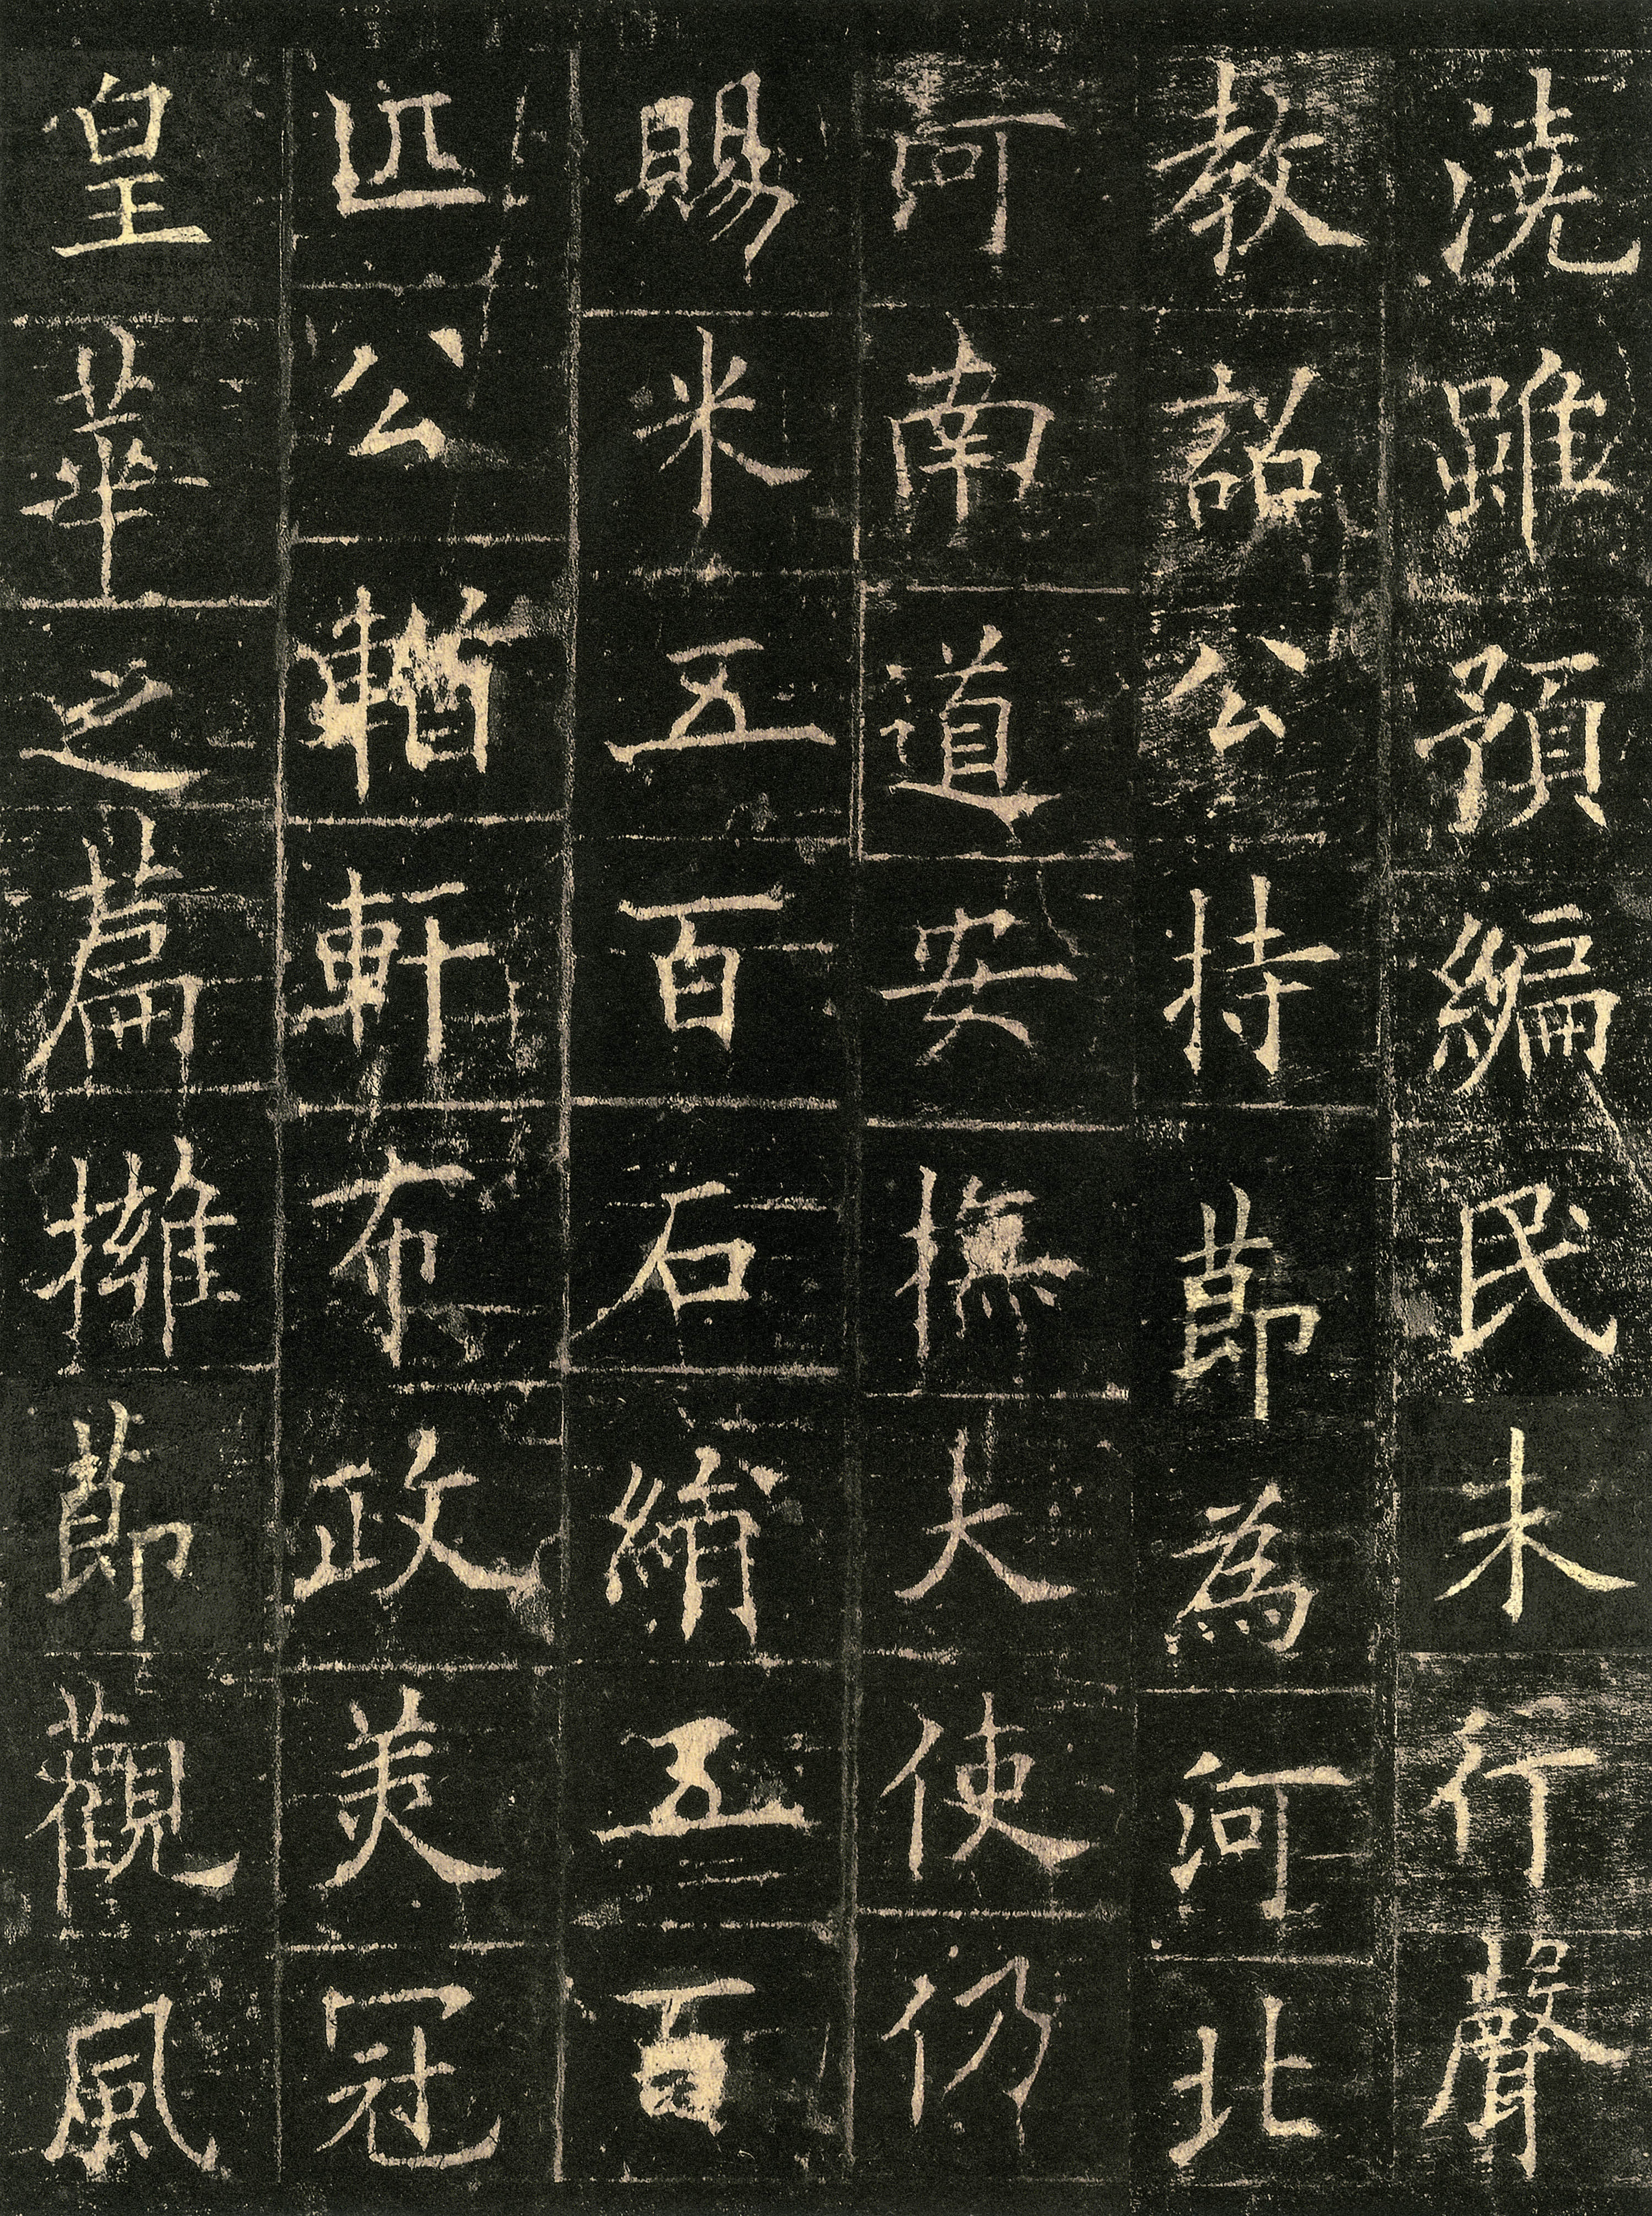 澆雖預編民未行聲
教詔公持節為河北
河南道安撫大使仍
賜米五百石絹五百
匹公輶軒布政美冠
皇華之篇擁節觀風